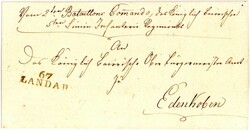 Vom 2ten Bataillons Comando, des Königlich baierischen
5ten Linien Infanterie Regiments
An
Das Königlich Baierische Ober bürgermeister Amt
zu
Edenkoben
67
LANDAU